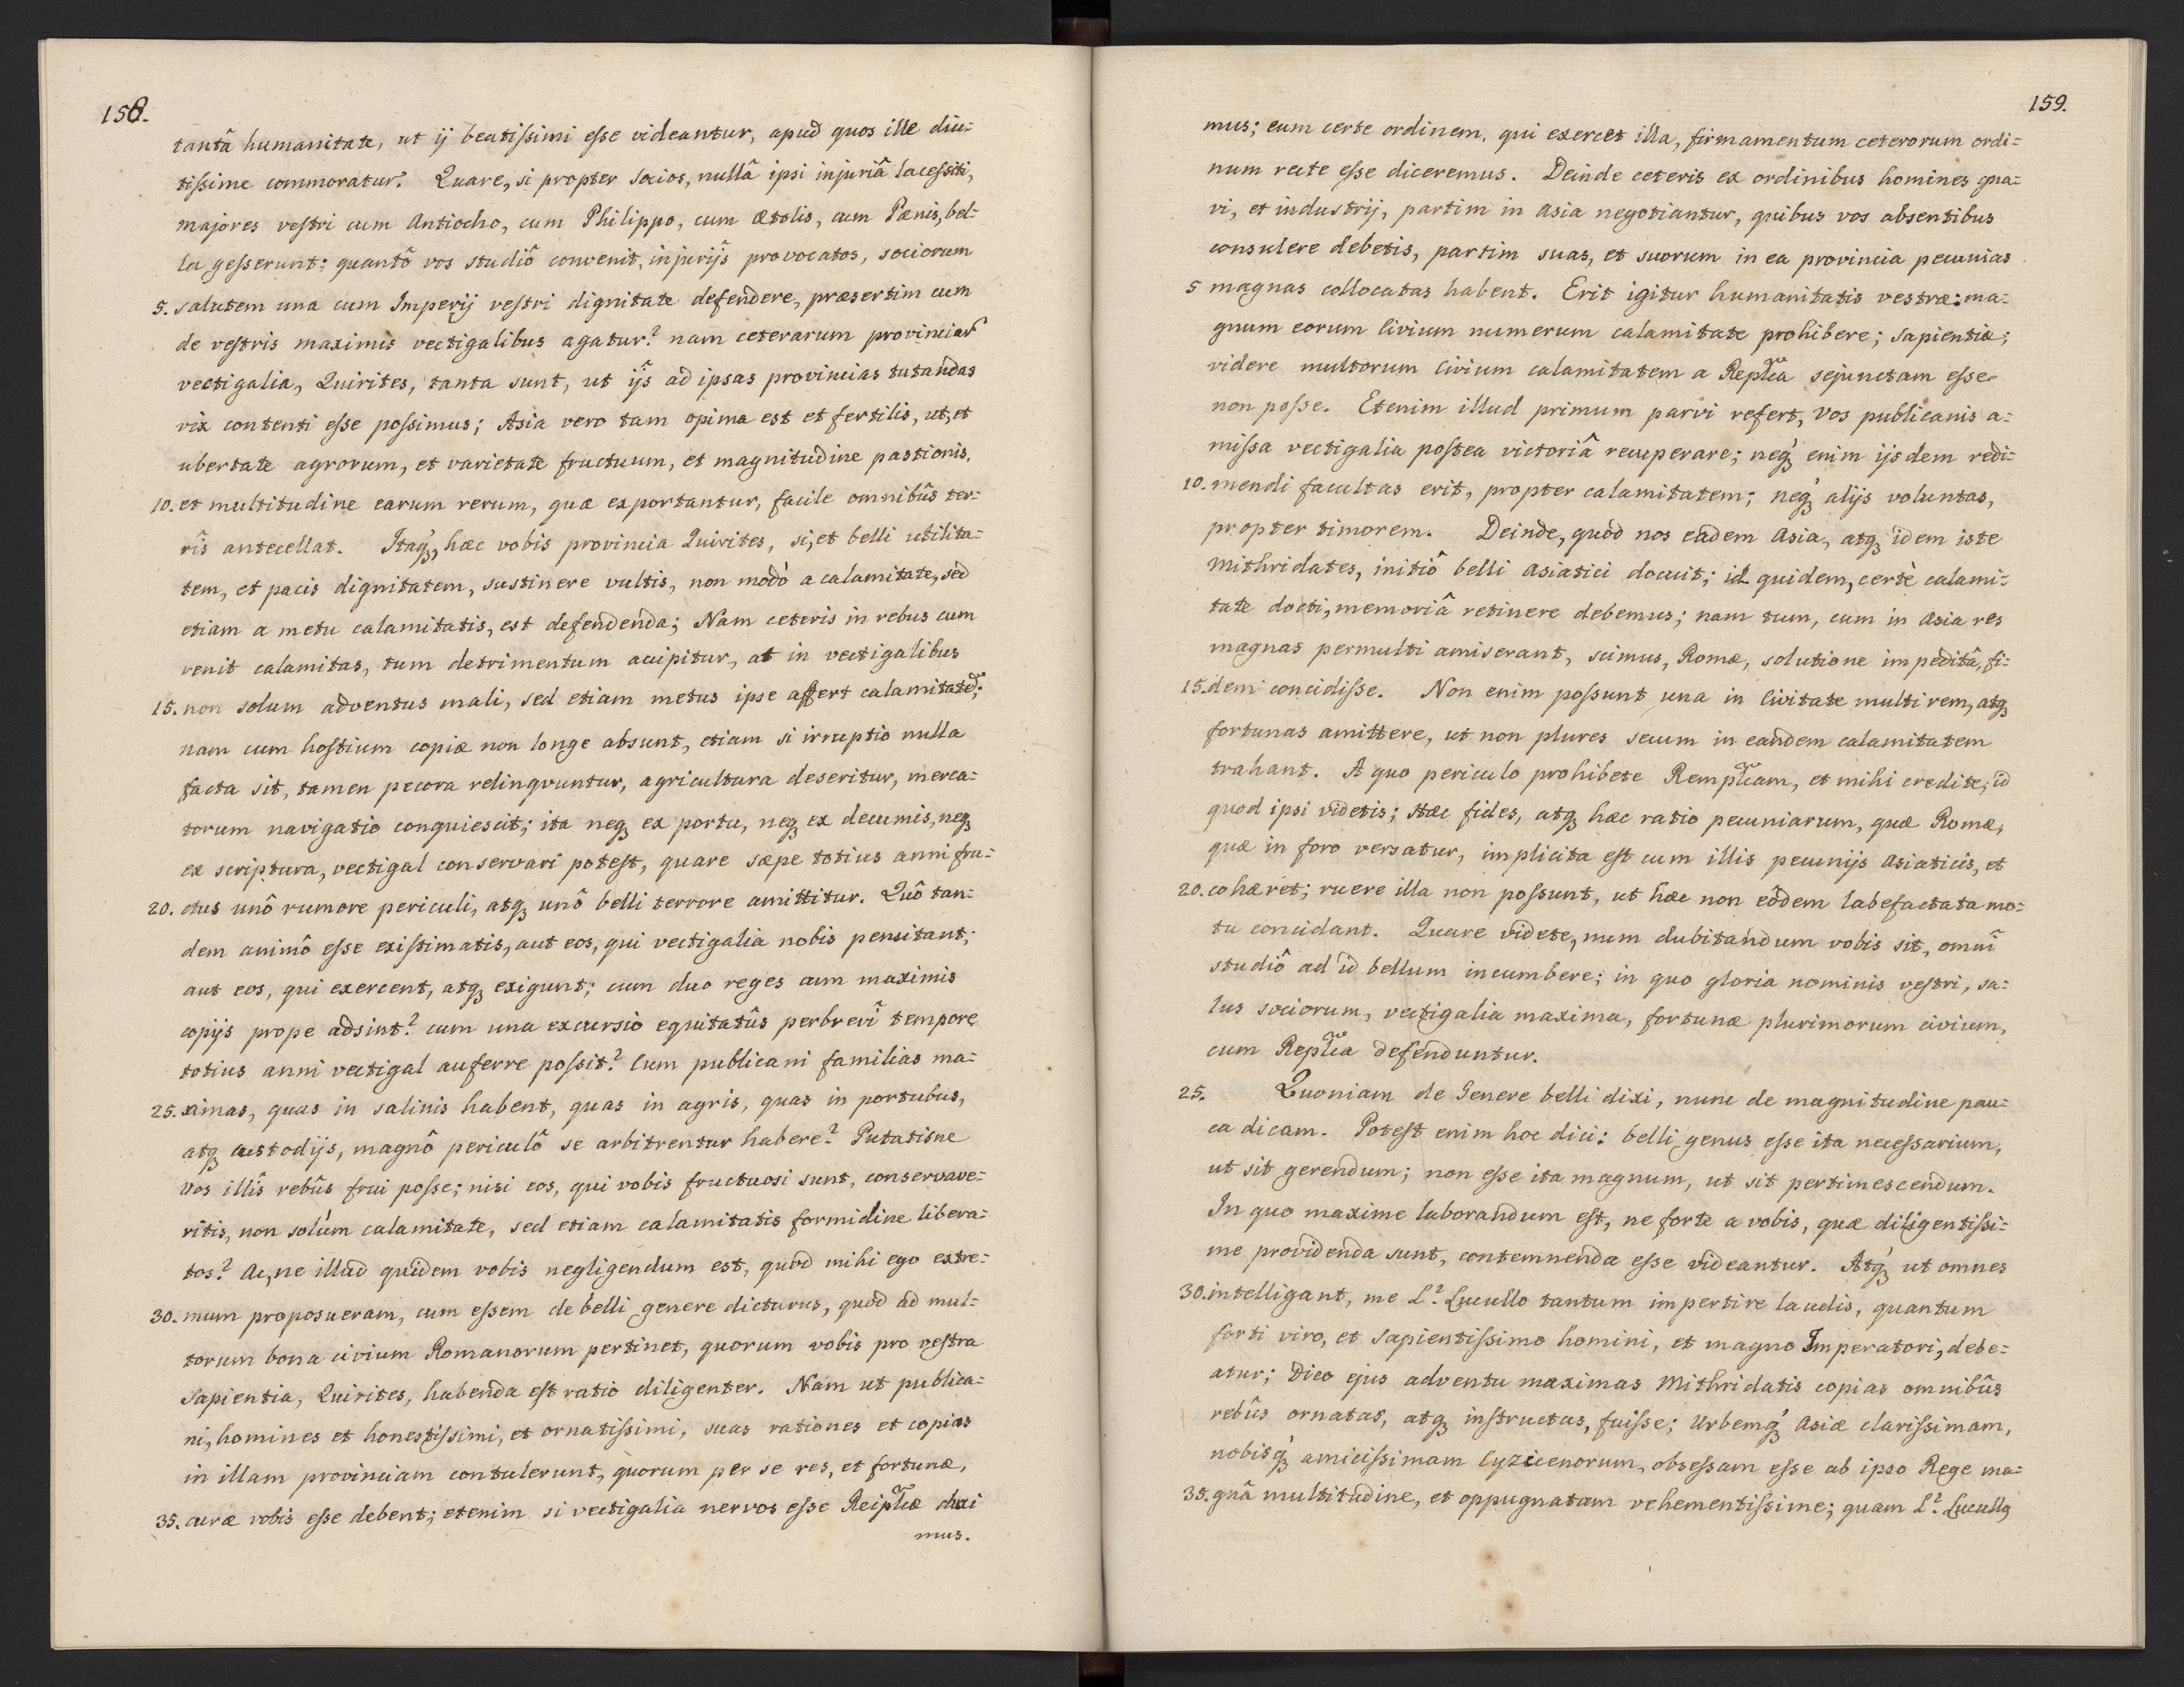 158.
tantâ humanitate, ut ij beatissimi esse videantur, apud quos ille diu=
tissime commoratur. Quare, si propter socios, nullâ ipsi injuriâ lacessiti,
majores vestri cum Antiocho, cum Philippo, cum Ætolis, cum Pænis, bel=
la gesserunt; quantô vos studiô convenit, injurijs provocatos, sociorum
5. salutem una cum Imperij vestri dignitate defendere, præsertim cum
de vestris maximis vectigalibus agatur? nam ceterarum provinciarũ
vectigalia, Quirites, tanta sunt, ut ijs ad ipsas provincias tutandas
vix contenti esse possimus; Asia vero tam opima est et fertilis, ut, et
ubertate agrorum, et varietate fructuum, et magnitudine pastionis,
10. et multitudine earum rerum, quæ exportantur, facile omnibûs ter=
rîs antecellat. Itaqꝫ, hæc vobis provincia Quirites, si, et belli utilita=
tem, et pacis dignitatem, sustinere vultis, non modò a calamitate, sed
etiam a metu calamitatis, est defendenda; Nam ceteris in rebus cum
venit calamitas, tum detrimentum accipitur, at in vectigalibus
15. non solum adventus mali, sed etiam metus ipse affert calamitatẽ;
nam cum hostium copiæ non longe absunt, etiam si irruptio nulla
facta sit, tamen pecora relinqvuntur, agricultura deseritur, merca=
torum navigatio conquiescit; ita neqꝫ ex portu, neqꝫ ex decumis, neqꝫ
ex scriptura, vectigal conservari potest, quare sæpe totius anni fru=
20. ctus unô rumore periculi, atqꝫ unô belli terrore amittitur. Quô tan=
dem animô esse existimatis, aut eos, qui vectigalia nobis pensitant;
aut eos, qui exercent, atqꝫ exigunt; cum duo reges cum maximis
copijs prope adsint? cum una excursio equitatûs perbrevî tempore
totius anni vectigal auferre possit? Cum publicani familias ma=
25. ximas, quas in salinis habent, quas in agris, quas in portubus,
atqꝫ custodijs, magnô periculô se arbitrentur habere? Putatisne
vos illîs rebûs frui posse; nisi eos, qui vobis fructuosi sunt, conservave=
ritis, non solùm calamitate, sed etiam calamitatis formidine libera=
tos? Ac, ne illud quidem vobis negligendum est, quòd mihi ego extre=
30. mum proposueram, cum essem de belli genere dicturus, quod ad mul=
torum bona civium Romanorum pertinet, quorum vobis pro vestra
sapientia, Quirites, habenda est ratio diligenter. Nam ut publica=
ni, homines et honestissimi, et ornatissimi, suas rationes et copias
in illam provinciam contulerunt, quorum per se res, et fortunæ,
35. curæ vobis esse debent; etenim si vectigalia nervos esse Reiplĩcæ duxi
mus.
159.
mus; eum certe ordinem, qui exercet illa, firmamentum ceterorum ordi=
num recte esse diceremus. Deinde ceteris ex ordinibus homines gna=
vi, et industrij, partim in Asia negotiantur, quibus vos absentibus
consulere debetis, partim suas, et suorum in ea provincia pecunias
5 magnas collocatas habent. Erit igitur humanitatis vestræ: ma=
gnum eorum Civium numerum calamitate prohibere; sapientiæ;
videre multorum Civium calamitatem a Replĩca sejunctam esse
non posse. Etenim illud primum parvi refert, Vos publicanis a=
missa vectigalia postea victoriâ recuperare; neqꝫ enim ijsdem redi=
10. mendi facultas erit, propter calamitatem; neqꝫ alijs voluntas,
propter timorem. Deinde, quòd nos eâdem Asia, atqꝫ idem iste
Mithridates, initiô belli Asiatici docuit; id quidem, certè calami=
tate docti, memoriâ retinere debemus; nam tum, cum in Asia res
magnas permulti amiserant, scimus, Romæ, solutione impeditâ, fi=
15. dem concidisse. Non enim possunt una in Civitate multi rem, atqꝫ
fortunas amittere, ut non plures secum in eandem calamitatem
trahant. A quo periculo prohibete Remplĩcam, et mihi credite, id
quod ipsi videtis; Hæc fides, atqꝫ hæc ratio pecuniarum, quæ Romæ,
quæ in foro versatur, implicita est cum illis pecunijs Asiaticis, et
20. cohæret; ruere illa non possunt, ut hæc non eôdem labefactata mo=
tu concidant. Quare videte, num dubitandum vobis sit, omnî
studiô ad id bellum incumbere; in quo gloria nominis vestri, sa=
lus sociorum, vectigalia maxima, fortunæ plurimorum civium,
cum Replĩca defenduntur.
25. Quoniam de Genere belli dixi, nunc de magnitudine pau=
ca dicam. Potest enim hoc dici: belli genus esse ita necessarium,
ut sit gerendum; non esse ita magnum, ut sit pertimescendum.
In quo maxime laborandum est, ne forte a vobis, quæ diligentissi=
me providenda sunt, contemnenda esse videantur. Atqꝫ ut omnes
30. intelligant, me L? Lucullo tantum impertire laudis, quantum
forti viro, et sapientissimo homini, et magno Imperatori, debe=
atur; Dico ejus adventu maximas Mithridatis copias omnibûs
rebûs ornatas, atqꝫ instructas, fuisse; Urbemqꝫ Asiæ clarissimam,
nobisqꝫ amicissimam Cyzicenorum, obsessam esse ab ipso Rege ma=
35. gnâ multitudine, et oppugnatam vehementissime; quam L? Lucullꝯ